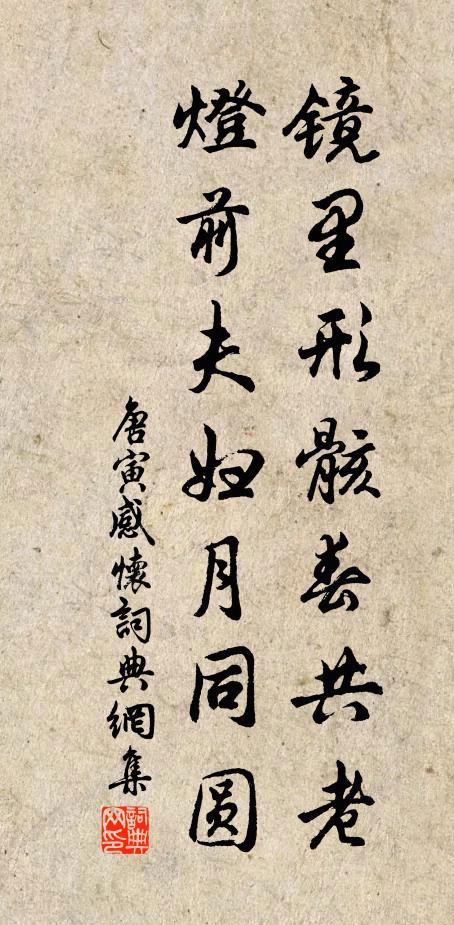 镜里形骸春共老
燈前夫妇月同圆
唐寅感懷詞典網集
詞典网印